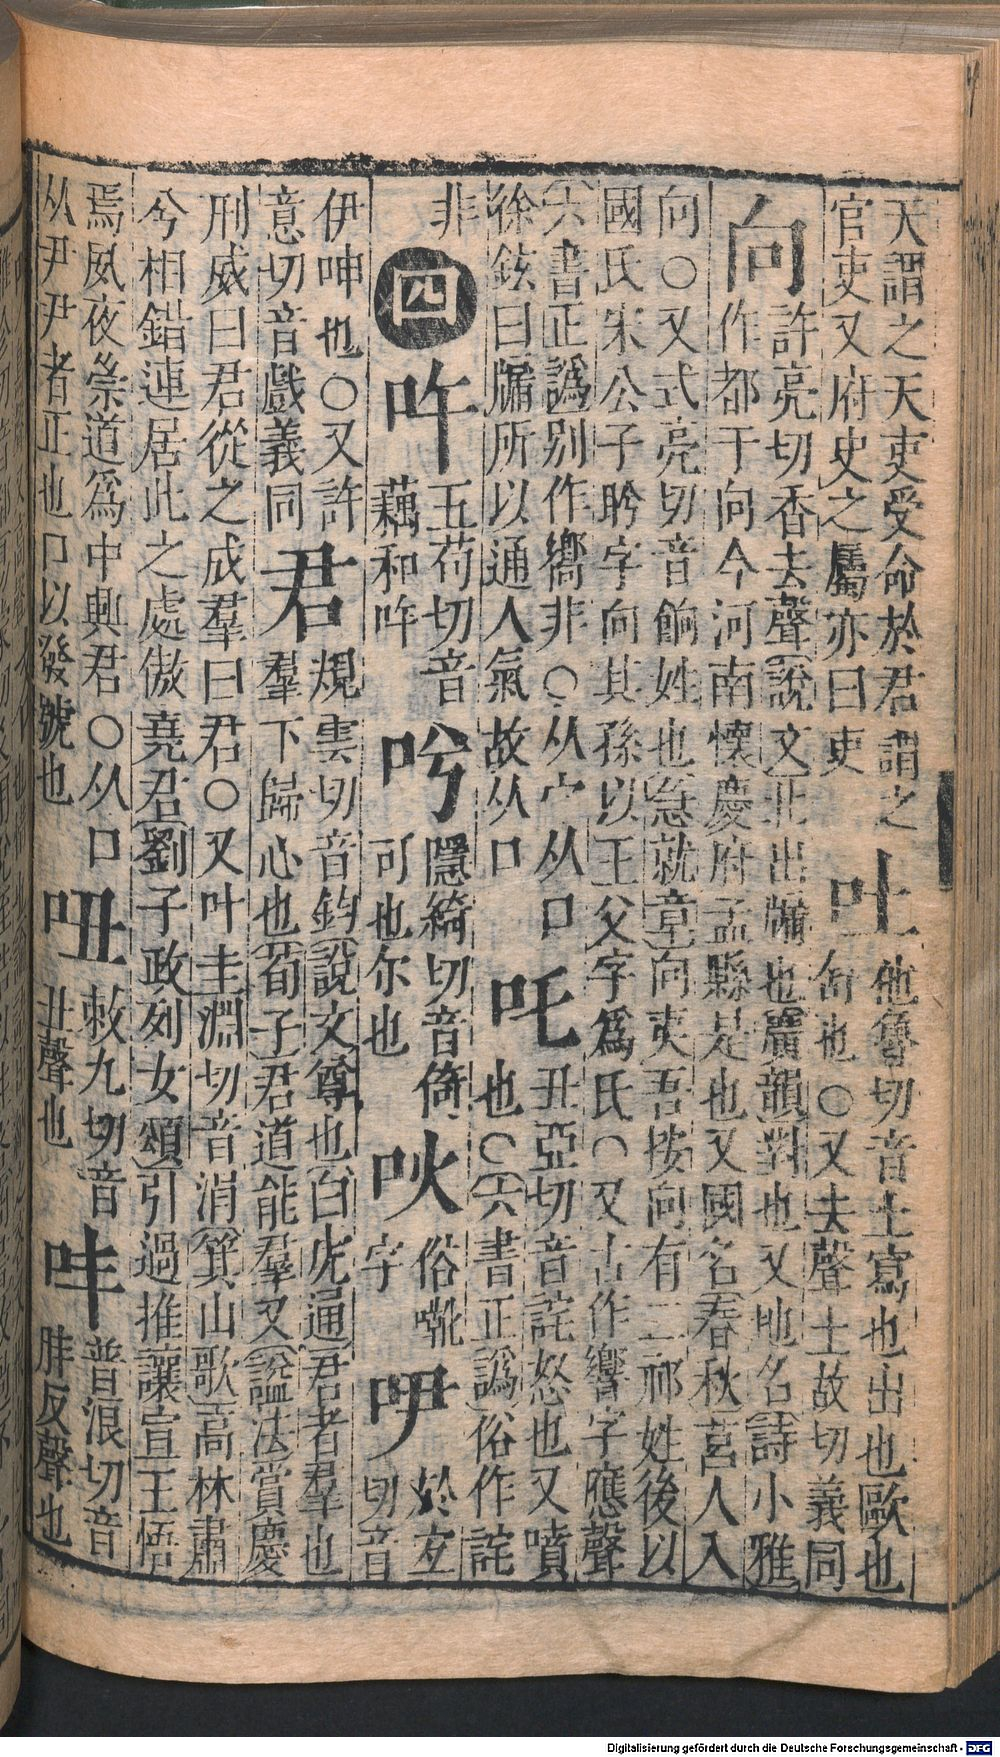 天謂之天吏受命於君謂之
官吏又府史之屬亦曰吏
吐
他魯切音土寫也出也歐也
舍也○又去聲土故切義同
向
許亮切香去聲說文北出牖也廣韻對也又地名詩小雅
作都于向今河南懷慶府孟縣是也又國名春秋莒人入
向○又式亮切音餉姓也急就章向夷吾按向有二祁姓後以
國氏宋公子肹字向其孫以王父字爲氏○又古作響字應聲
六書正譌别作嚮非○从宀从口
徐鉉曰牖所以通人氣故从口
吒
丑亞切音詫怒也又噴
也○六書正譌俗作詫
非
四
吘
五苟切音
藕和吘
隱綺切音倚
可也尔也
吙
俗
字
吚
切音
伊呻也○又許
意切音戲義同
君
規雲切音鈞說文尊也白虎通君者羣也
羣下歸心也荀子君道能羣又諡法賞慶
刑威曰君從之成羣曰君○又叶圭淵切音涓箕山歌高林肅
兮相錯連居此之處傲堯君劉子政列女頌引過推讓宣王悟
焉夙夜崇道爲中興君○从口
从尹尹者正也口以發號也
吜
敕九切音
丑聲也
普浪切音
胖反聲也
Digitalisierung gefördert durch die Deutsche Forschungsgemeinschaft - DFG